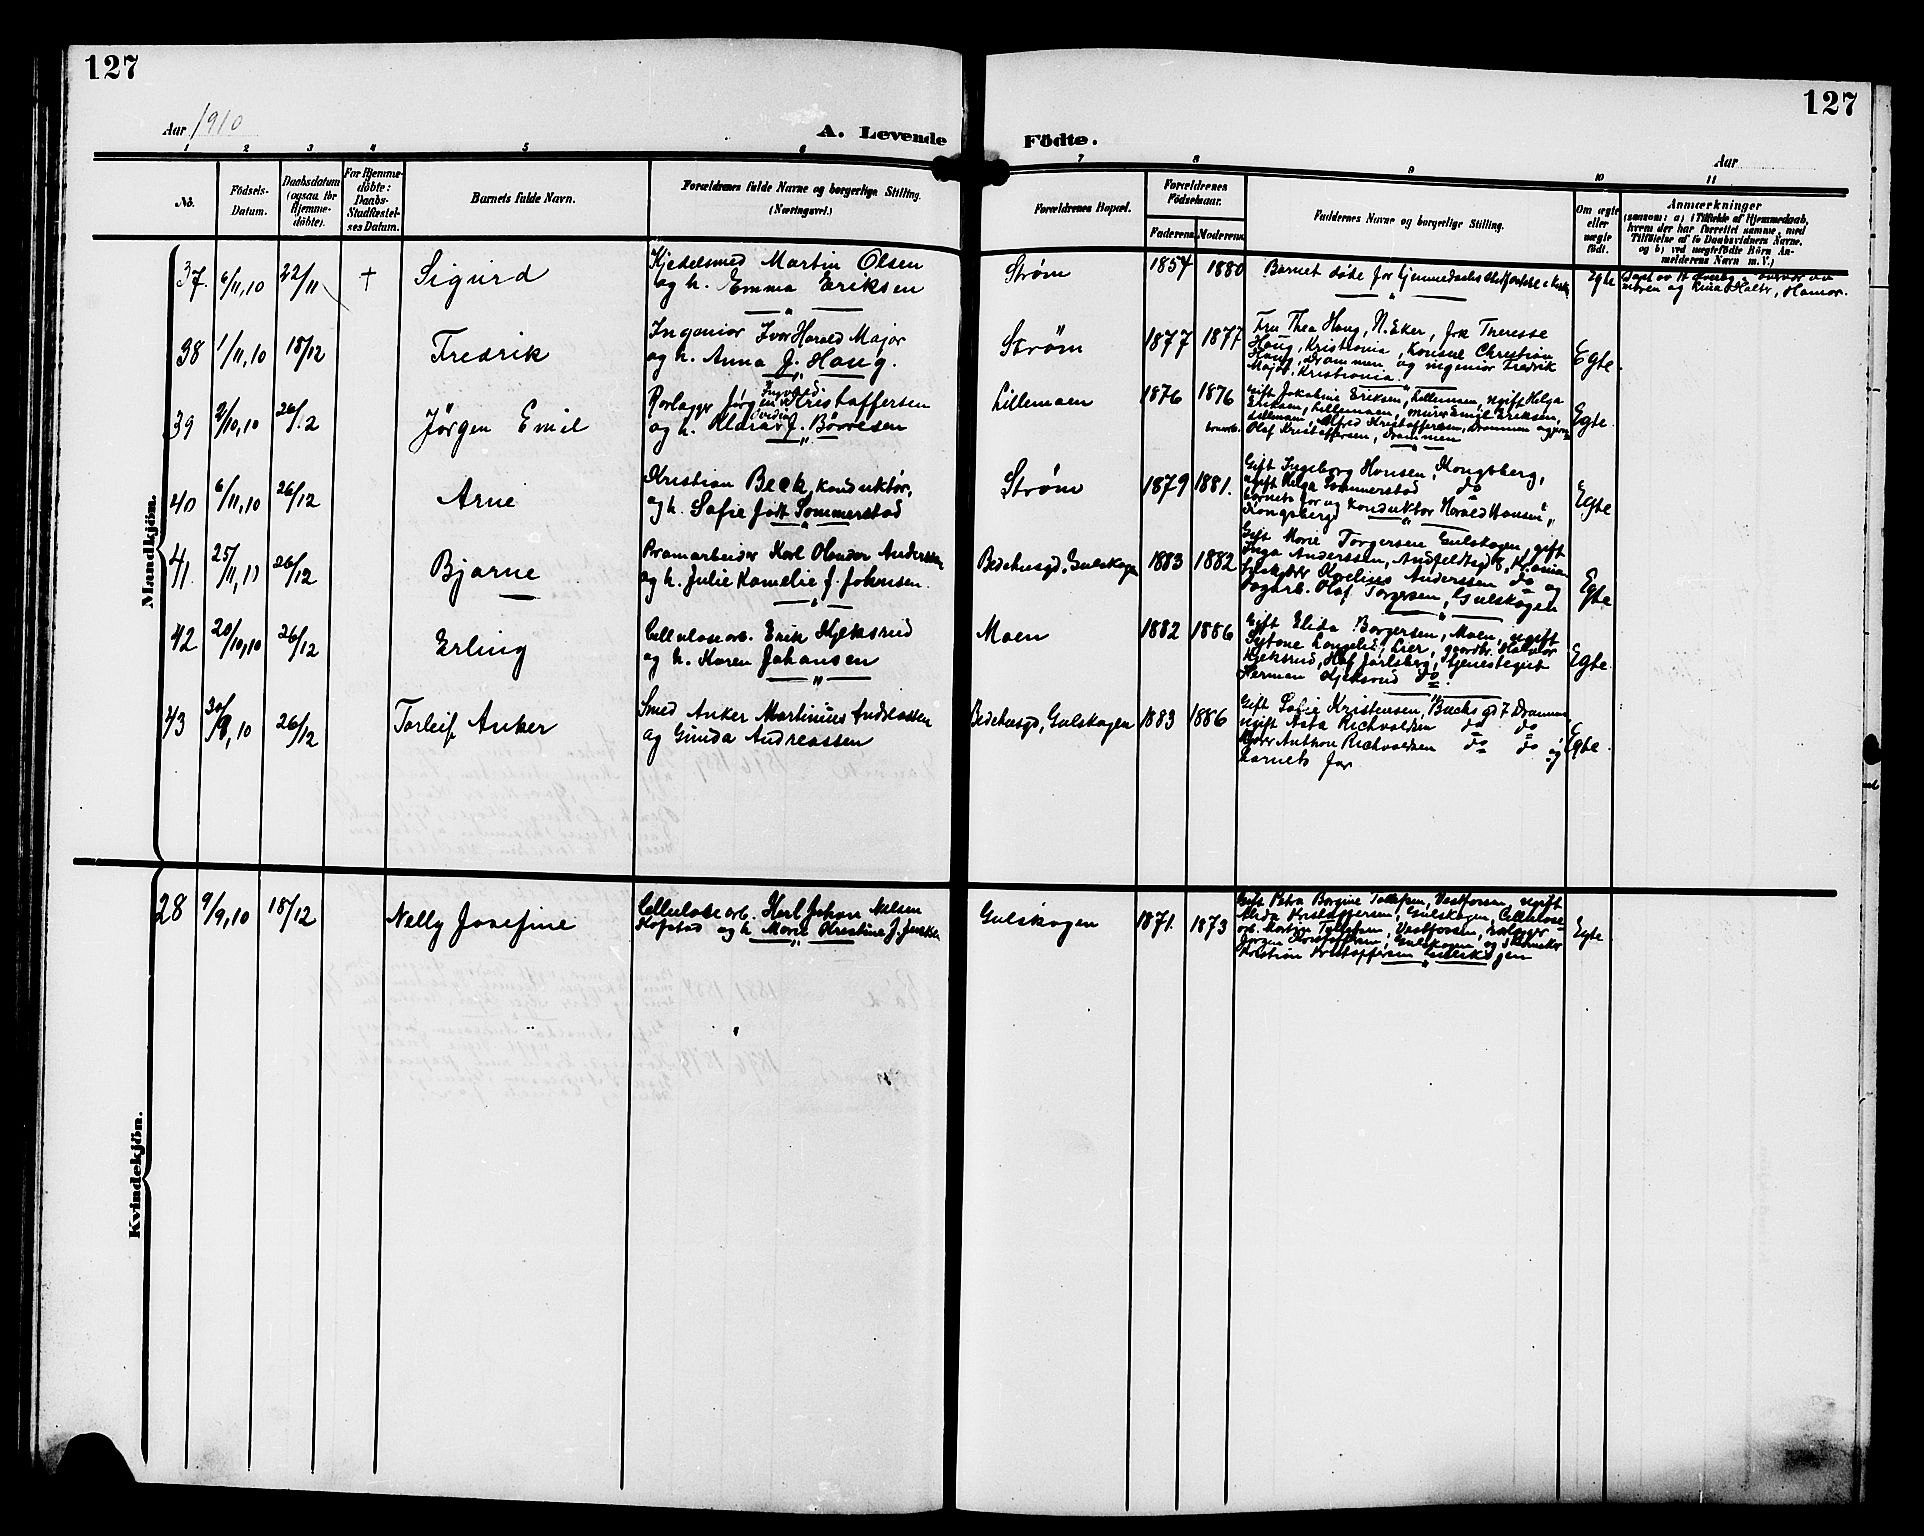 127
127
Aar 1910
A. Levende Födte.
Aar
1 2 3 4 5 6 7 8 9 10 11
No.
Födsels-Datum.
Daabsdatum (ogsaa for Hjemme-döbte).
For Hjemme-döbte: Daabs-Stadfæstel-ses Datum.
Barnets fulde Navn.
Forældrenes fulde Navne og borgerlige Stilling. (Næringsvei.)
Forældrenes Bopæl.
Forældrenes Födselsaar.
Faderens. Moderens.
Faddernes Navne og borgerlige Stilling.
Om ægte eller uægte födt.
Anmærkninger
(saasom: a) i Tilfælde af Hjemmedaab, hvem der har forrettet samme, med Tilföielse af to Daabsvidners Navne, og b) ved uægtefödte Börn An-melderens Navn m. V.)
Mandkjøn.
37. 6/11,10 22/11 + Sigurd
Kjedelsmed Martin Olsen
og h. Emma Eriksen
Strøm 1857 1880
Barnet døde før hjemmedaabs
Egte
38 1/11,10 18/12 Fredrik
Ingeniør Ivar Harald Major
og h. Anna J. Haug.
Strøm 1877 1877
Fru Thea Haug, N. Eker, frk Therese
Haug, Kristiania, Konsul Christian
Haug, Drammen og ingeniør Fredrik
Major, Kristiania.
Egte.
39 2/10,10 26/12 Jörgen Emil
Rörlægger Jörgen Kristoffersen
og h. Klara J. Börresen
Lillemoen 1876 1876
Gift Jokobine Eriksen, Lillemoen, ugift Helga
Eriksen, Lillemoen, murer Emil Eriksen,
Lillemoen, Alfred Kristoffersen, Drammen og
Olaf Kristoffersen, Drammen
Egte.
40 6/11,10 26/12 Arne
Kristian Beck, konduktör,
og h. Sofie födt Sommerstad
Strøm 1879 1881.
Gift Ingeborg Hansen, Kongsberg,
ugift Helga Sommerstad do
barnets far og konduktör Harald Hansen,
Kongsberg
Egte
41. 25/11,10 26/12 Bjarne
Bramarbeider Karl Anderssen
og h. Julie Kamelie f. Johansen.
Bedehusgd, Gulskogen 1883 1882
Gift Marie Torgersen Gulskogen, gift
Inga Anderssen,
Anderssen do og
Olaf Torgersen, Gulskogen
Egte
42 20/10,10 26/12 Erling
Cellulosearb. Erik Hjeksrud
og h. Karen Johansen
Moen 1882 1886
Gift Elida Borgersen, Moen, ugift
Lier, gaardbr. Halvor
Hjeksrud, Jarlsberg, tjenestegut
Herman Hjeksrud do.
Egte
43 30/9,10 26/12 Torleif Anker
Smed Anker Martinius Andreassen
og Gunda Andreassen
Bedehusgd, Gulskogen 1883 1886
Gift Sofie Kristensen, Buchsgd 7 Drammen
ugift Asta Richvoldsen do do
Anthon Richvoldsen do do og
barnets far
Egte
Kvindekjön.
28 9/9,10 18/12 Nelly Josefine
Cellulosearb. Karl Johan Nilsen
Hofstad og h. Marie Kristine J.
Gulskogen 1871. 1873
Gift Petra Borgine Tollefsen, Vestfossen, ugift
Alida Kristoffersen, Gulskogen, Cellulose-
arb. Martin Tollefsen, Vestfossen, rörlægger
Jörgen Kristoffersen, Gulskogen og
Kristian Kristoffersen Gulskogen
Egte